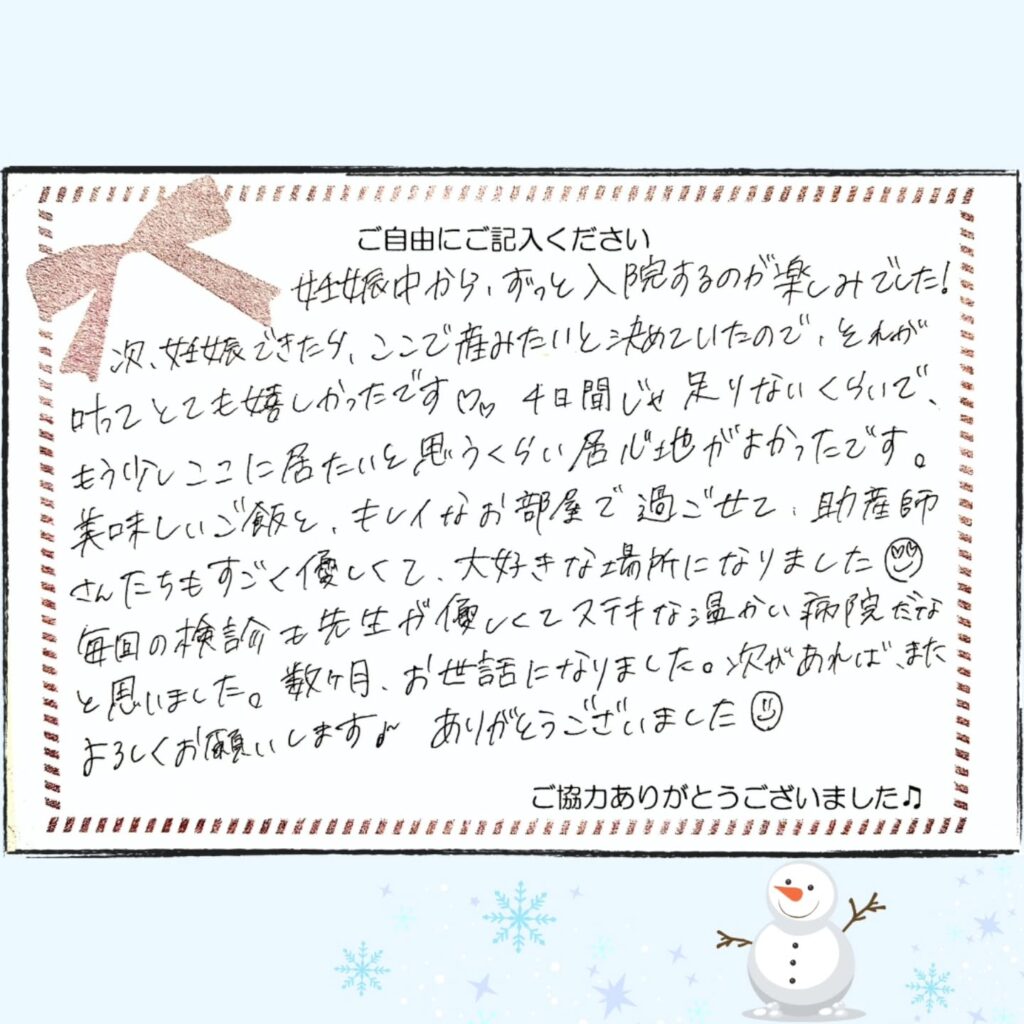 ご自由にご記入ください
妊娠中から、ずっと入院するのが楽しみでした!
次、妊娠できたら、ここで産みたいと決めていたので、それが
叶ってとても嬉しかったです♡♡ 4日間じゃ足りないくらいで、
もう少しここに居たいと思うくらい居心地がよかったです。
美味しいご飯と、キレイなお部屋で過ごせて、助産師
さんたちもすごく優しくて、大好きな場所になりました
毎回の検診も先生が優しくてステキな温かい病院だな
と思いました。数ヶ月、お世話になりました。次があれば、また
よろしくお願いします♪ ありがとうございました
ご協力ありがとうございました♫